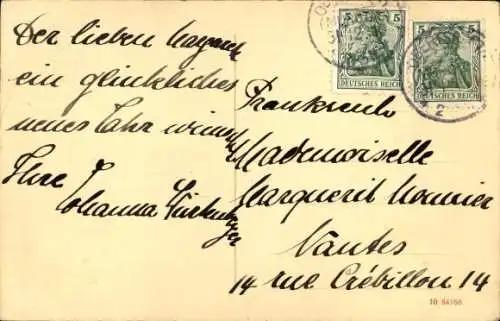 Der lieben
ein glückliches
neues Jahr wünscht
Ihre
Johanna
5
5
DEUTSCHES REICH
DEUTSCHES REICH
2
Frankreich
Mademoiselle
Marguerit Monnier
Nantes
14 rue Crébillon 14
10 84166